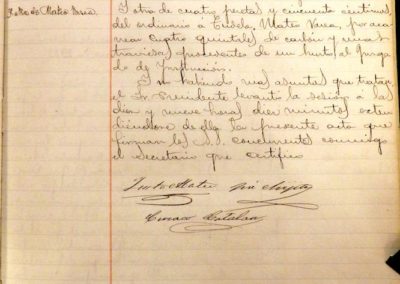 Y otro de cuatro pesetas y cincuenta centimos
del ordinario a Eusebio Mateo Varea, por aca-
rrear cuatro quintales de carbón y unas
traviesas procedentes de un hurto al Juzga-
do de Instrucción.
Y no habiendo mas asuntos que tratar
el Sr. Presidente levantó la sesión a las
diez y nueve horas diez minutos exten
diendose de ella la presente acta que
firman los S.S. concurrentes conmigo
el Secretario que certifico
Justo Mateo José
Catalan